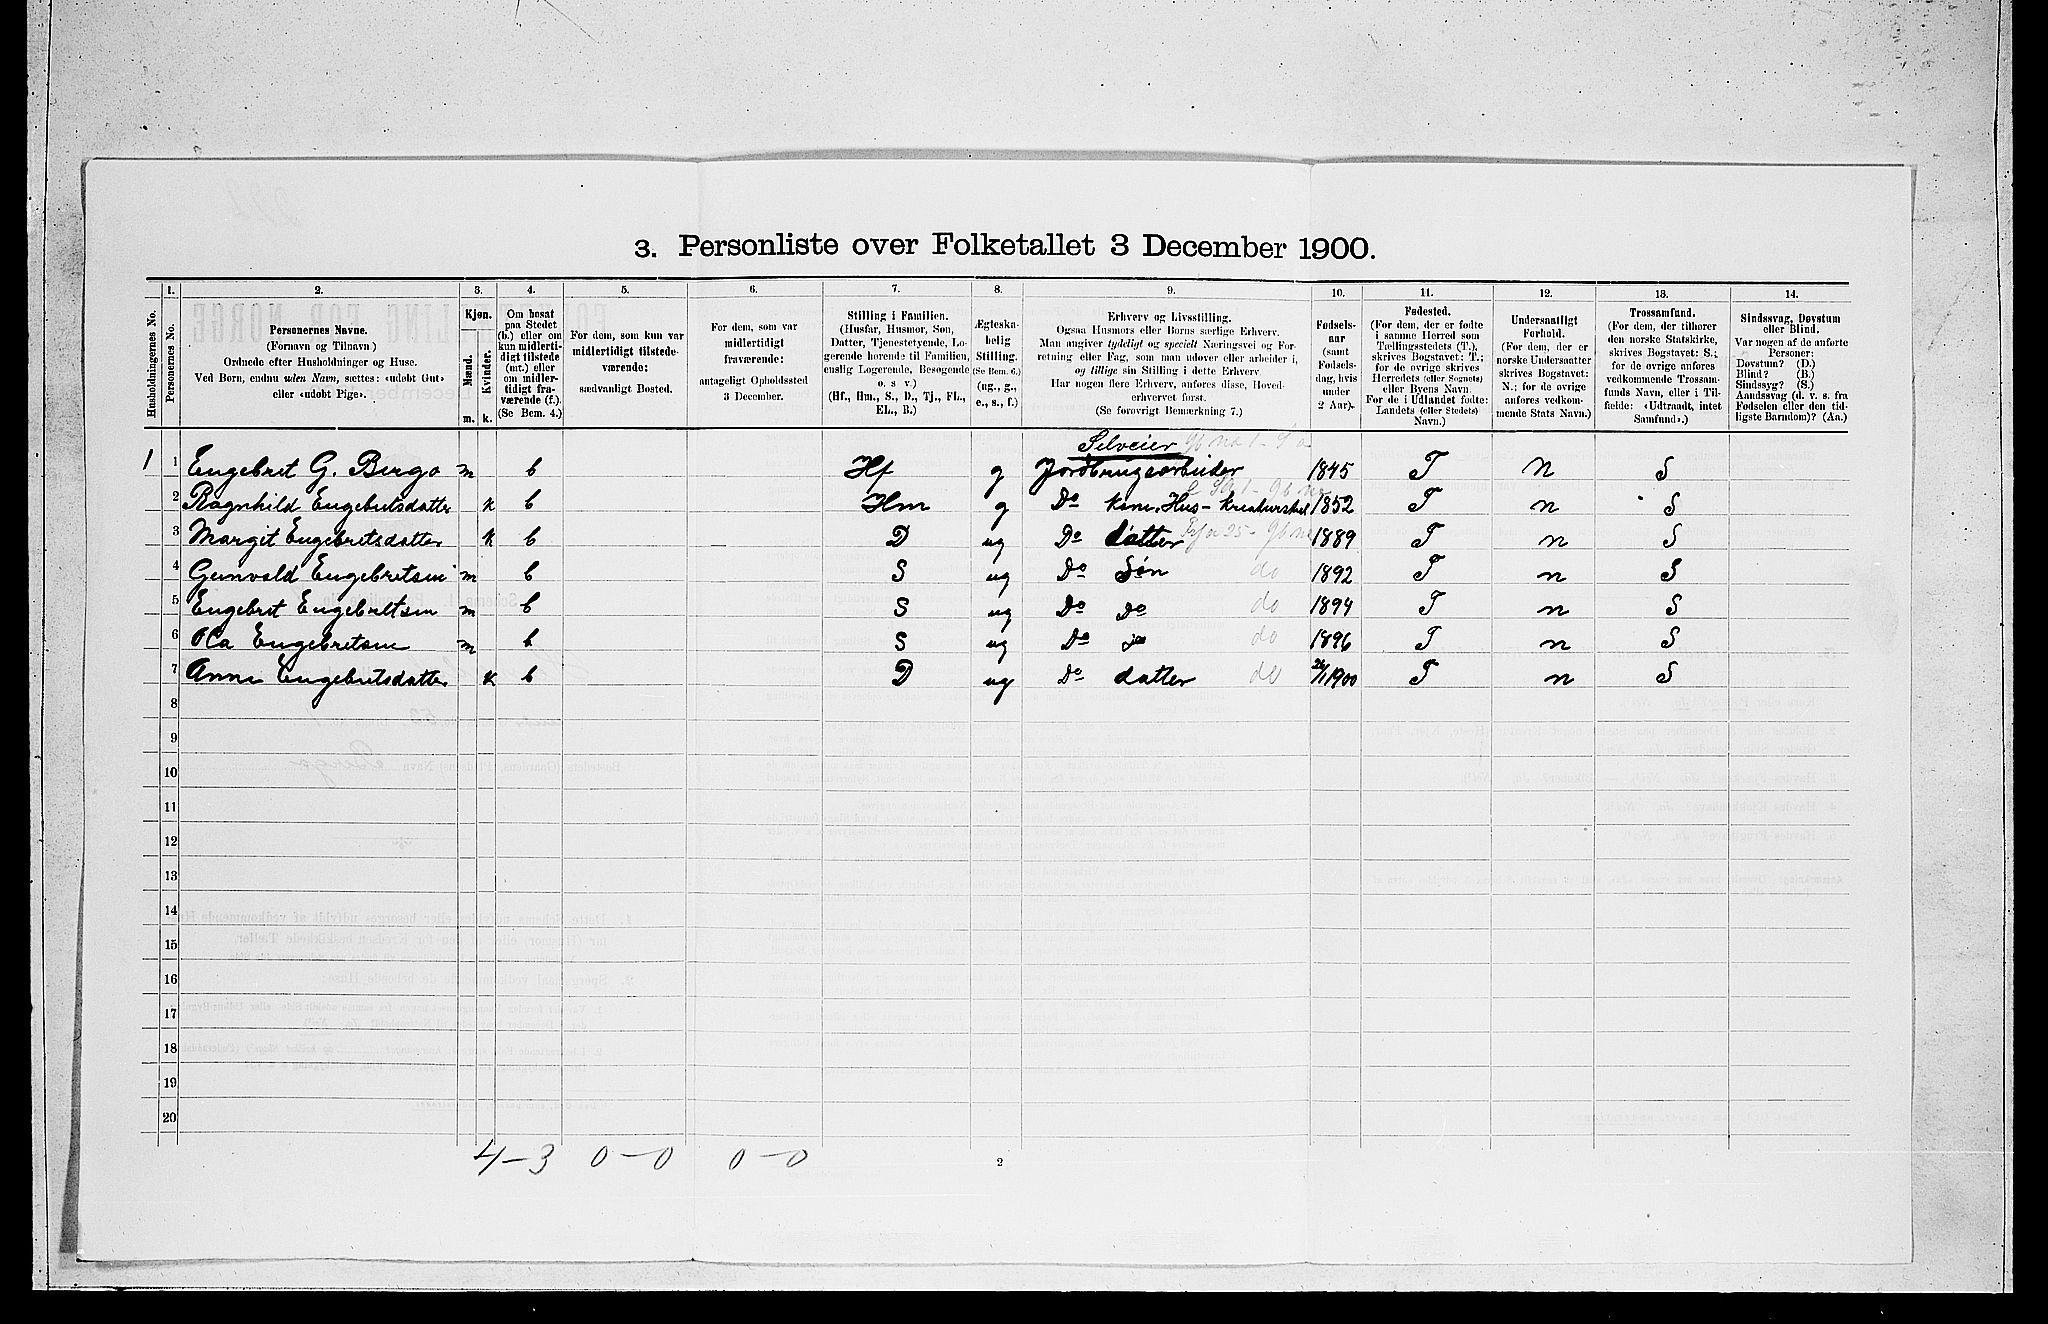 3. Personliste over Folketallet 3 December 1900.
1. 2. 3. 4. 5. 6. 7. 8. 9. 10. 11. 12. 13. 14.
Husholdningernes No.
Personernes No.
Personernes Navne.
(Fornavn og Tilnavn)
Ordnede efter Husholdninger og Huse.
Ved Børn, endnu uden Navn, sættes: «udøbt Gut»
eller «udøbt Pige».
Kjøn.
Mænd.
Kvinder.
m. k.
Om bosat
paa Stedet
(b.) eller om
kun midlerti-
digt tilstede
(mt.) eller
om midler-
tidigt fra-
værende (f.).
(Se Bem. 4.)
For dem, som kun var
midlertidigt tilstede-
værende:
sædvanligt Bosted.
For dem, som var
midlertidigt
fraværende:
antageligt Opholdssted
3 December.
Stilling i Familien.
(Husfar, Husmor, Søn,
Datter, Tjenestetyende, Lo-
gerende hørende til Familien,
enslig Logerende, Besøgende
o. s. v.)
(Hf., Hm., S., D., Tj., FL.,
EL., B.)
Ægteska-
belig
Stilling.
(Se Bem. 6.)
(ug., g.,
e., s., f.)
Erhverv og Livsstilling.
Ogsaa Husmors eller Børns særlige Erhverv.
Man angiver tydeligt og specielt Næringsvei og For-
retning eller Fag, som man udøver eller arbeider i,
og tillige sin Stilling i dette Erhverv.
Har nogen flere Erhverv, anføres disse, Hoved-
erhvervet først.
(Se forøvrigt Bemærkning 7.)
Fødsels-
aar
(samt
Fødsels-
dag, hvis
under
2 Aar).
Fødested.
(For dem, der er fødte
i samme Herred som
Tællingsstedets (T.),
skrives Bogstavet: T.;
for de øvrige skrives
Herredets (eller Sognets)
eller Byens Navn.
For de i Udlandet fødte:
Landets (eller Stedets)
Navn.)
Undersaatligt
Forhold.
(For dem, der er
norske Undersaatter
skrives Bogstavet:
N.; for de øvrige
anføres vedkom-
mende Stats Navn.)
Trossamfund.
(For dem, der tilhører
den norske Statskirke,
skrives Bogstavet: S.;
for de øvrige anføres
vedkommende Trossam-
funds Navn, eller i Til-
fælde: «Udtraadt, intet
Samfund».)
Sindssvag, Døvstum
eller Blind.
Var nogen af de anførte
Personer:
Døvstum? (D.)
Blind? (B.)
Sindssyg? (S.)
Aandssvag (d. v. s. fra
Fødselen eller den tid-
ligste Barndom)? (Aa.)
Selveier
1 1 Engebret G. Bergo m b Hf g Jordbrugsarbeider 1845 T N S
2 Ragnhild Engebretsdatter k b Hm g Do Kone, Hus- Kreaturstel 1852 T n S
3 Margit Engebretsdatter k b D ug Do datter 1889 T n S
4 Gunvald Engebretsen m b S ug Do Søn do 1892 T n S
5 Engebret Engebretsen m b S ug Do Do do 1894 T n S
6 Ola Engebretsen m b S ug Do do do 1896 T n S
7 Anne Engebretsdatter k b D ug Do datter do 26/1 1900 T n S
8
9
10
11
12
13
14
15
16
17
18
19
20
4-3 0-0 0-0
2